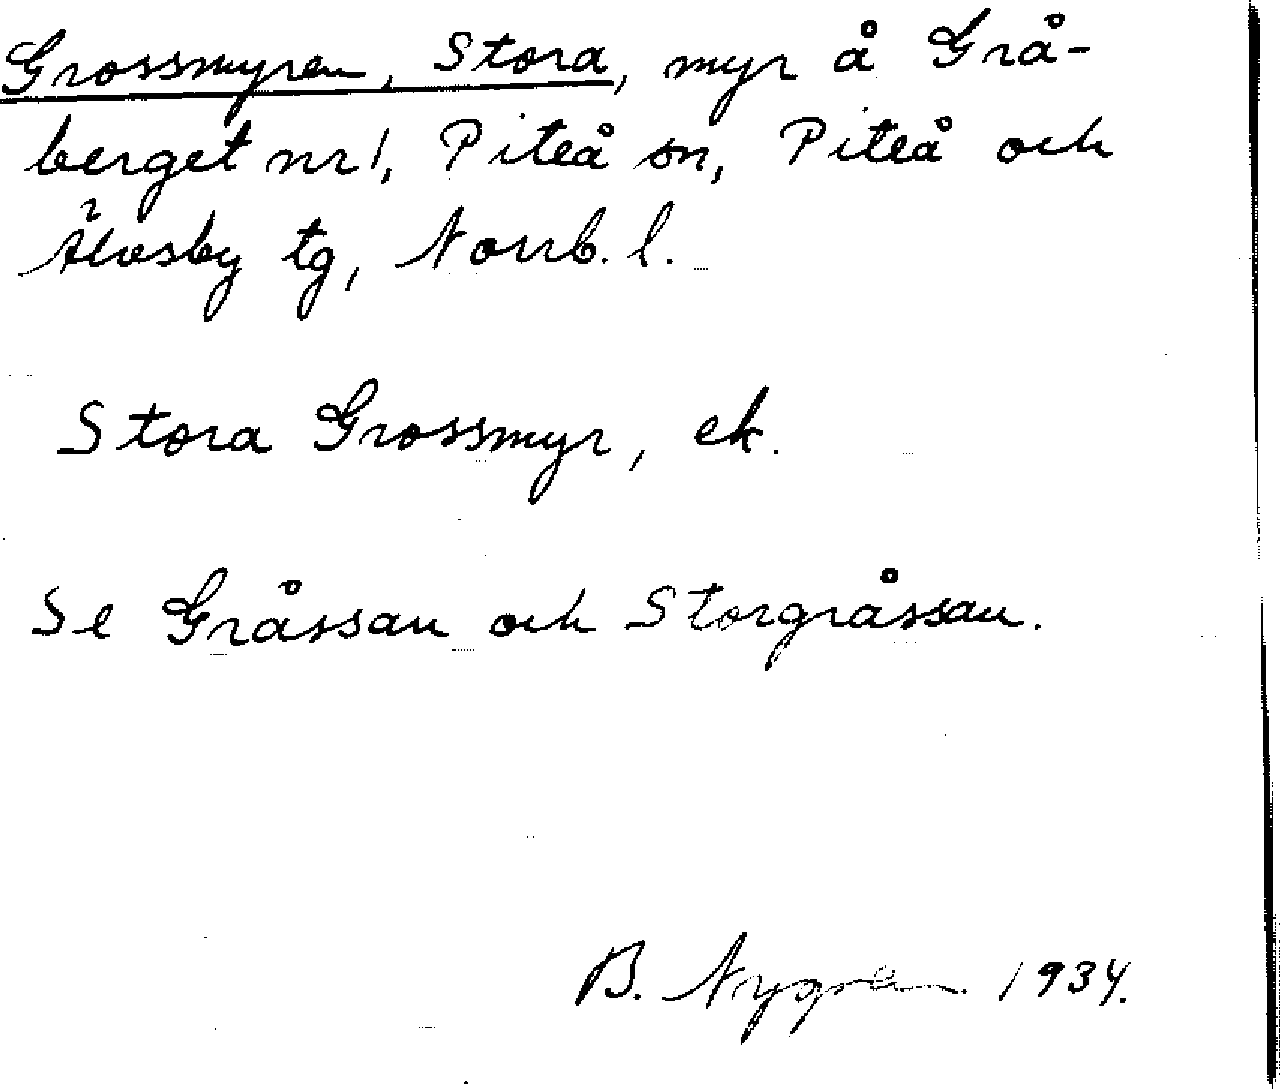 Grossmyren, Stora, myr å Grå-
berget nr 1, Piteå sn, Piteå och
Älvsby tg, Norrb. l.
Stora Grossmyr, ek.
Se Gråssan och Storgråssan.
B. Nygren 1934.